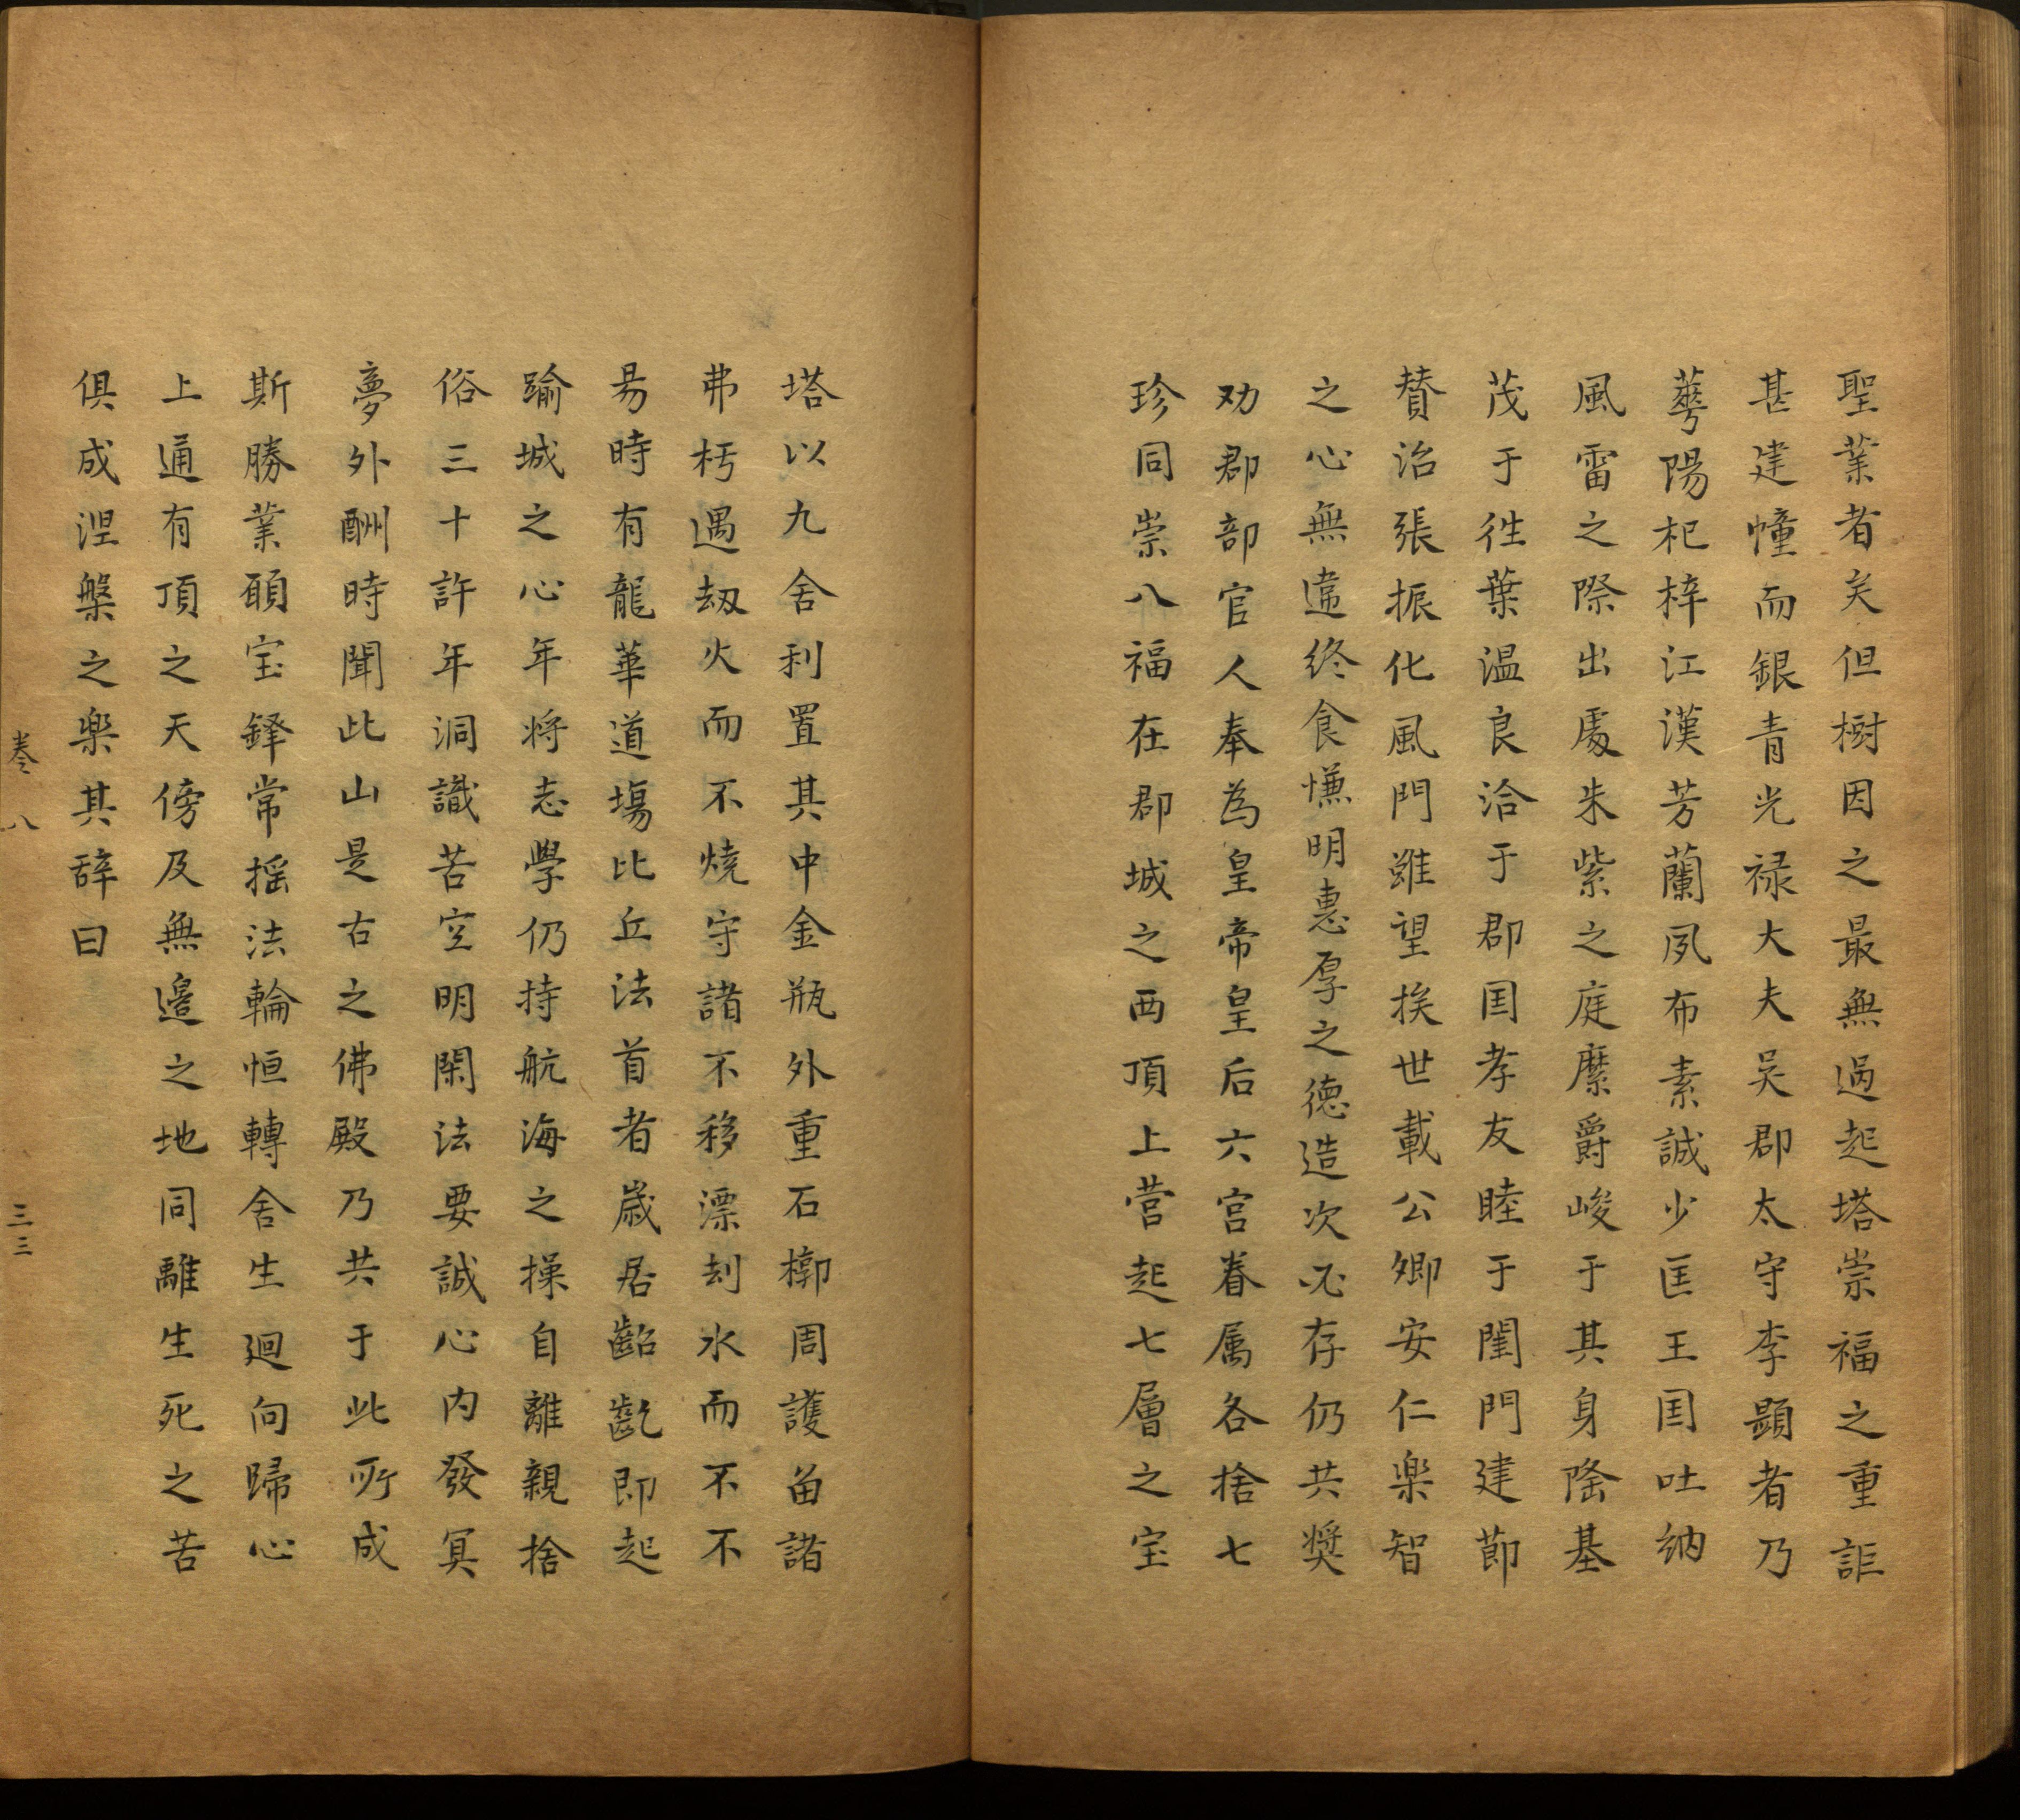 聖業者矣但樹因之最無過起塔崇福之重詎
甚建幢而銀青光禄大夫吴郡太守李顕者乃
蕚陽杞梓江漢芳蘭夙布素誠少匡王囯吐納
風雷之際出處朱紫之庭縻爵峻于其身隆基
茂于徃葉温良洽于郡囯孝友睦于閨門建莭
賛治張振化風門雖望挨世載公卿安仁楽智
之心無違终食慊明惠厚之德造次必存仍共奨
劝郡部官人奉為皇帝皇后六宫眷属各捨七
珍同崇八福在郡城之西頂上营起七層之宝
塔以九舍利置其中金瓶外重石槨周護畄諸
弗朽遇刼火而不燒守諸不移漂刧水而不不
昜時有龍華道塲比丘法首者歳居齠齓即起
踰城之心年将志學仍持航海之操自離親捨
俗三十許年洞識苦空明閑法要誠心内發冥
夢外酬時聞此山是古之佛殿乃共于此所成
斯勝業願宝鐸常摇法輪恒轉舍生迴向歸心
上通有頂之天傍及無邉之地同離生死之苦
俱成涅槃之楽其辞曰
卷八 三三